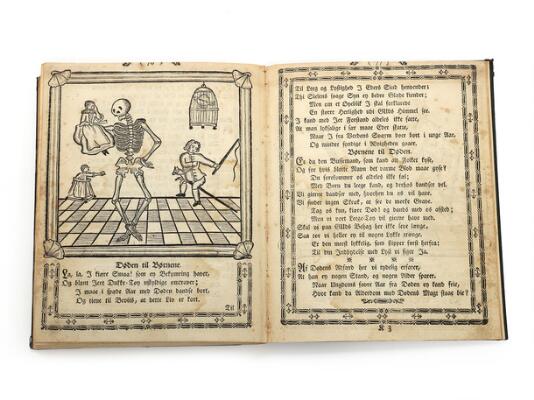 Døden til Børnene.
Ja, ja, I kiære Smaa! som ey Bekymring haver,
Og blant Jert Dukke-Tøy uskyldige omgaaer;
I maae i spæde Aar med Døden dandse fort,
Og tiene til Beviis, at dette Liv er kort.
Til
Til Leeg og Lystighed I Eders Sind henvender;
Men om et Øyeblik I skal forklarede
En større Herlighed udi GUds Himmel see.
I kand med Jer Forstand aldeles ikke fatte,
At man lyksalige i saa maae Eder skatte,
Naar I fra Verdens Snarer gaaer bort i unge Aar,
Og mindre syndige i Evigheden gaaer.
Børnene til Døden.
Er du den Bussemand, som kand alt Folket kyse,
Og for hvis blotte Navn det varme Blod maae gyse?
Du forekommer os aldeles ikke fæl;
Med Børn du leege kand, og derhos dandser vel.
Vi gierne dandser med, hvorhen du os vil have,
Vi finder ingen Skræk, at see de mørke Grave.
Tag os kun, kiære Død! og dands med os afsted;
Men vi vort Leege-Tøy vil gierne have med.
Skal vi paa GUds Behag her ikke leve længe,
Saa troe vi heller ey til nogen Lykke trænge.
Er den meest lykkelig, som slipper først herfra;
Til din Indbydelse med Lyst vi siger Ja.
Af Dødens Adfærd her vi tydelig erfarer,
At han ey nogen Stand, og nogen Alder sparer.
Naar Ungdoms favre Aar fra Døden ey kand frie,
Hvor kand da Alderdom med Dødens Magt staae bie?
K 3